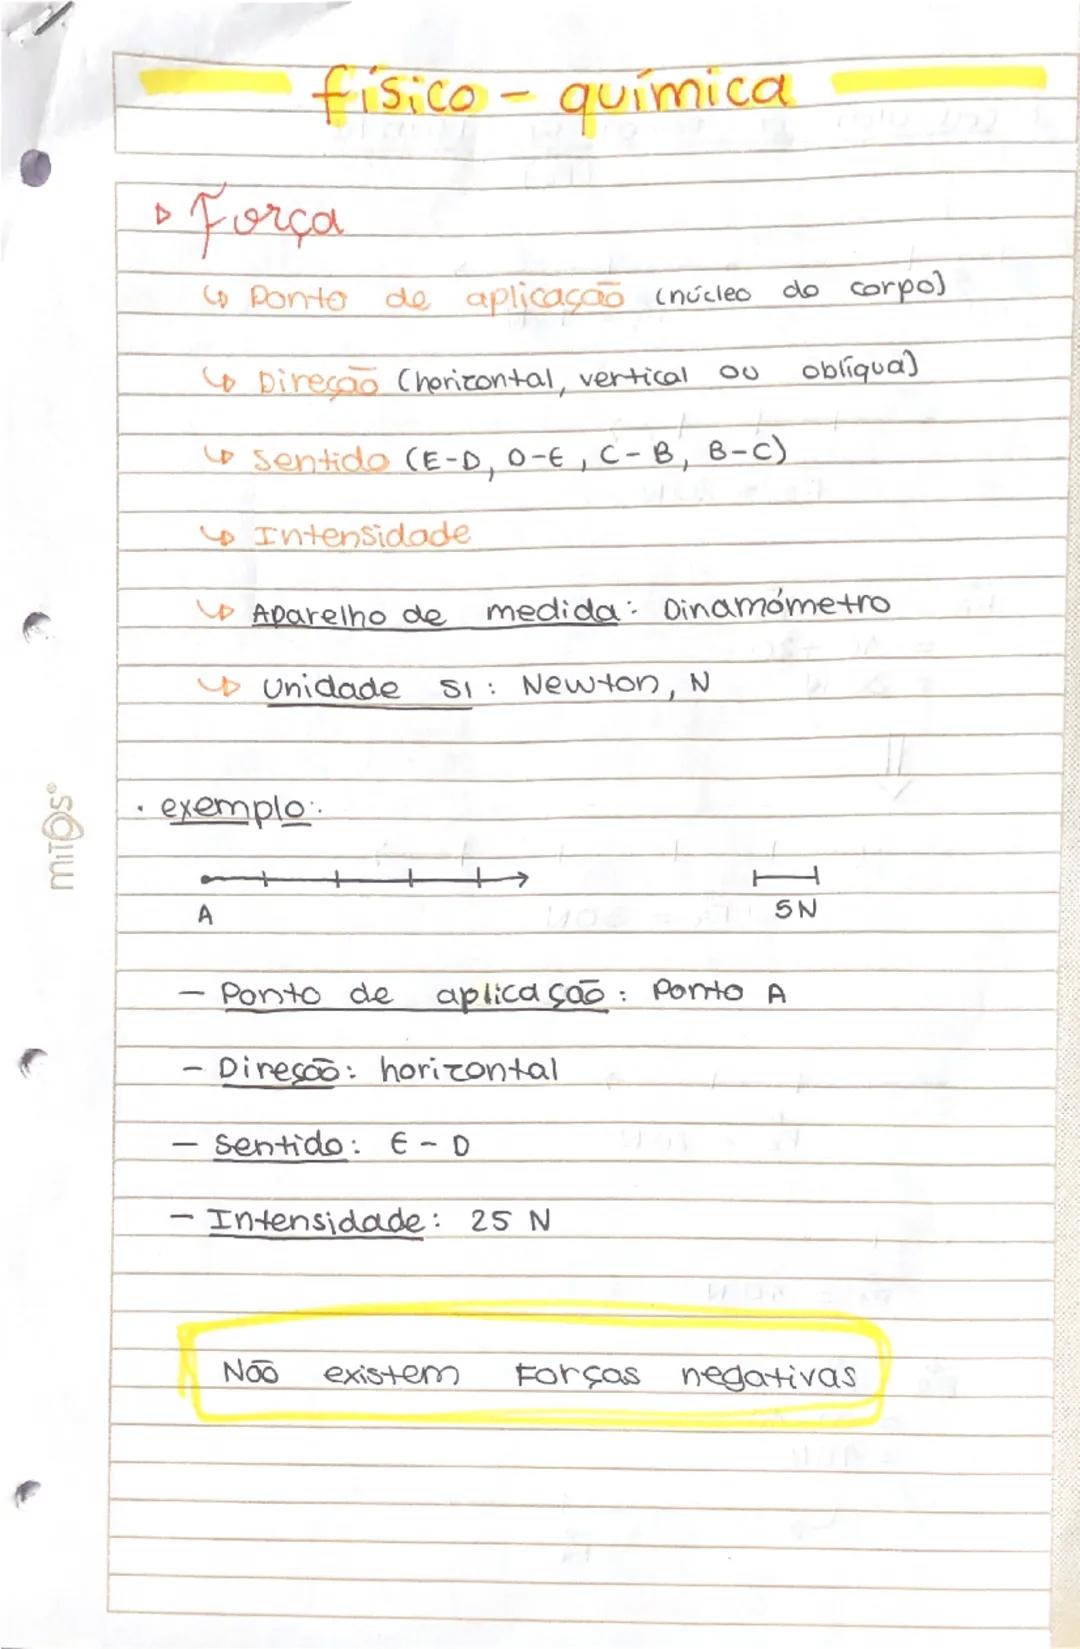 físico - química
Força
Ponto de aplicação (núcleo do corpo)
Direção (horizontal, vertical ou oblíqua)
Sentido (E-D, D-E, C-B, B-C)
Intensidade
Aparelho de medida: Dinamómetro
Unidade SI: Newton, N
• exemplo:
A 5N
- Ponto de aplicação: Ponto A
- Direção: horizontal
- Sentido: E - D
- Intensidade: 25 N
Não existem Forças negativas
mitos